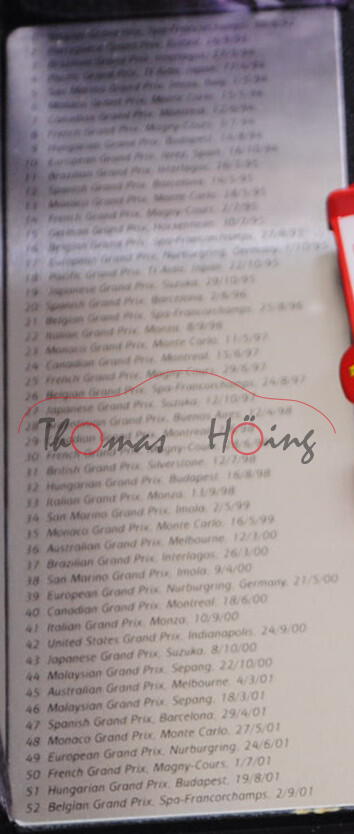 1 Belgian Grand Prix, Spa-Francorchamps,
2 Portuguese Grand Prix, Estoril,
3 Brazilian Grand Prix, Interlagos, 27/3/94
4 Pacific Grand Prix, TI Aida, Japan, 17/4/94
5 San Marino Grand Prix, Imola, Italy, 1/5/94
6 Monaco Grand Prix, Monte Carlo, 15/5/94
7 Canadian Grand Prix, Montreal, 12/6/94
8 French Grand Prix, Magny-Cours, 3/7/94
9 Hungarian Grand Prix, Budapest, 14/8/94
10 European Grand Prix, Jerez, Spain, 16/10/94
11 Brazilian Grand Prix, Interlagos, 26/3/95
12 Spanish Grand Prix, Barcelona, 14/5/95
13 Monaco Grand Prix, Monte Carlo, 28/5/95
14 French Grand Prix, Magny-Cours, 2/7/95
15 German Grand Prix, Hockenheim, 30/7/95
16 Belgian Grand Prix, Spa-Francorchamps, 27/8/95
17 European Grand Prix, Nurburgring, Germany, 1/10/95
18 Pacific Grand Prix, TI Aida, Japan, 22/10/95
19 Japanese Grand Prix, Suzuka, 29/10/95
20 Spanish Grand Prix, Barcelona, 2/6/96
21 Belgian Grand Prix, Spa-Francorchamps, 25/8/96
22 Italian Grand Prix, Monza, 8/9/96
23 Monaco Grand Prix, Monte Carlo, 11/5/97
24 Canadian Grand Prix, Montreal, 15/6/97
25 French Grand Prix, Magny-Cours, 29/6/97
26 Belgian Grand Prix, Spa-Francorchamps, 24/8/97
27 Japanese Grand Prix, Suzuka, 12/10/97
Grand Prix, Buenos Aires, 12/4/98
Thomas Höing
29 Canadian Grand Prix, Montreal,
30 French Grand Prix, Magny-Cours,
31 British Grand Prix, Silverstone, 12/7/98
32 Hungarian Grand Prix, Budapest, 16/8/98
33 Italian Grand Prix, Monza, 13/9/98
34 San Marino Grand Prix, Imola, 2/5/99
35 Monaco Grand Prix, Monte Carlo, 16/5/99
36 Australian Grand Prix, Melbourne, 12/3/00
37 Brazilian Grand Prix, Interlagos, 26/3/00
38 San Marino Grand Prix, Imola, 9/4/00
39 European Grand Prix, Nurburgring, Germany, 21/5/00
40 Canadian Grand Prix, Montreal, 18/6/00
41 Italian Grand Prix, Monza, 10/9/00
42 United States Grand Prix, Indianapolis, 24/9/00
43 Japanese Grand Prix, Suzuka, 8/10/00
44 Malaysian Grand Prix, Sepang, 22/10/00
45 Australian Grand Prix, Melbourne, 4/3/01
46 Malaysian Grand Prix, Sepang, 18/3/01
47 Spanish Grand Prix, Barcelona, 29/4/01
48 Monaco Grand Prix, Monte Carlo, 27/5/01
49 European Grand Prix, Nurburgring, 24/6/01
50 French Grand Prix, Magny-Cours, 1/7/01
51 Hungarian Grand Prix, Budapest, 19/8/01
52 Belgian Grand Prix, Spa-Francorchamps, 2/9/01